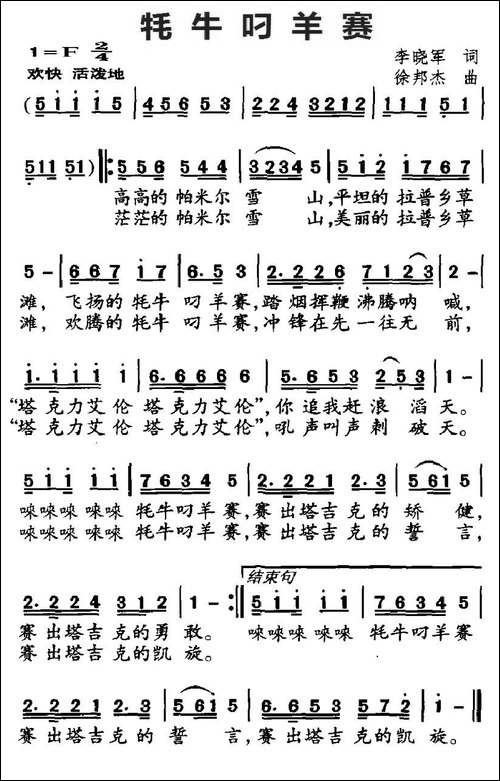 牦牛叼羊赛
1=F 2/4
李晓军 词
欢快 活泼地
徐邦杰 曲
(5 i i i 5 | 4 5 6 5 3 | 2 2 4 3 2 1 2 | 1 1 1 5 1 |
5 1 1 5 1) ‖: 5 5 6 5 4 4 | 3 2 3 4 5 | 5 i 2 1 7 6 7 |
高高的 帕米尔 雪 山,平坦的 拉普乡草
茫茫的 帕米尔 雪 山,美丽的 拉普乡草
5 - | 6 6 7 i 7 | 6. 5 3 | 2. 2 2 6 7 1 2 3 | 2 - |
滩, 飞扬的 牦牛 叼羊赛,踏 烟挥鞭 沸腾呐 喊,
滩, 欢腾的 牦牛 叼羊赛,冲 锋在先 一往无 前,
i. i i i i | 6. 6 6 6 6 | 5. 6 5 3 2 5 3 | 1 - |
“塔 克力艾 伦 塔 克力艾 伦”,你 追我赶 浪 滔 天。
“塔 克力艾 伦 塔 克力艾 伦”,吼 声叫声 刺 破 天。
5 i i i | 7 6 3 4 5 | 2. 2 2 1 2. 3 | 5 6 1 |
唻唻唻 唻唻 牦牛叼羊 赛,赛 出塔吉 克的 矫 健,
唻唻唻 唻唻 牦牛叼羊 赛,赛 出塔吉 克的 誓 言,
2. 2 2 4 3 1 2 | 1 - :‖ 结束句 5 i i i i | 7 6 3 4 5 |
赛 出塔吉 克的勇 敢。 唻唻唻 唻唻 牦牛叼羊 赛
赛 出塔吉 克的凯 旋。
2. 2 2 1 2. 3 | 5 6 1 | 6. 6 5 3 5 7 2 | i - ‖
赛 出塔吉 克的 誓 言,赛 出塔吉 克的凯 旋。